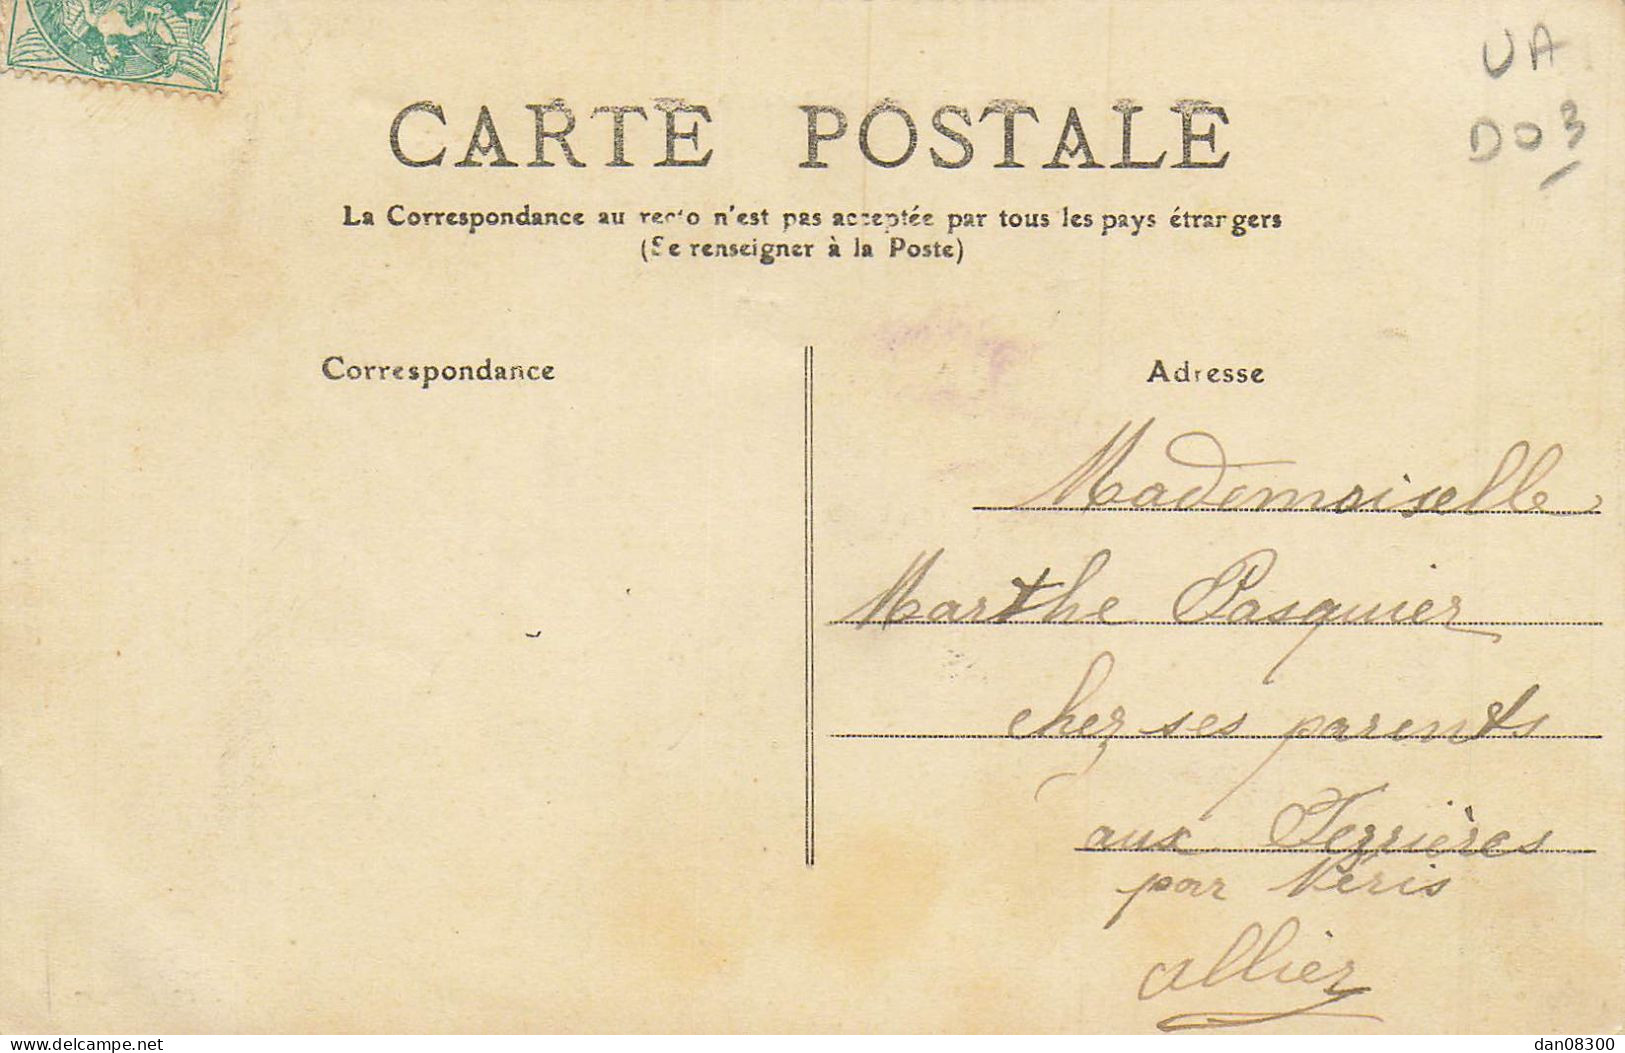 UA
D03
CARTE POSTALE
La Correspondance au recto n'est pas acceptée par tous les pays étrangers
(Se renseigner à la Poste)
Correspondance
Adresse
Mademoiselle
Marthe Pasquier
chez ses parents
aux Ferrières
par Néris
Allier
delcampe.net
dan08300